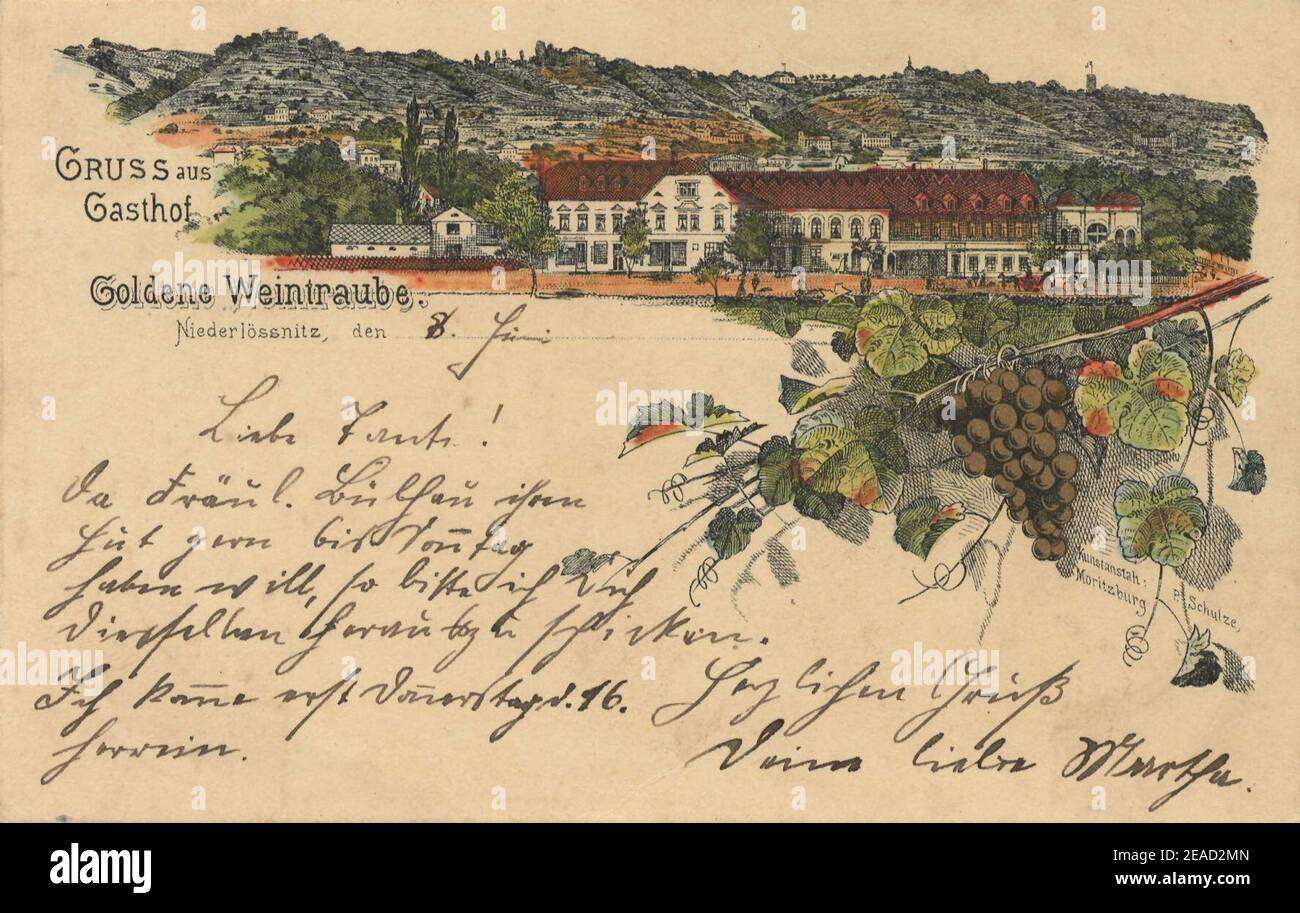 GRUSS aus
Gasthof
Goldene Weintraube.
Niederlössnitz, den 8. Juni
Liebe Tante!
Da Fräul. ihren
Hut gern bis Sonntag
haben will, so bitte ich Dich
denselben herauszu schicken.
Ich kom̅e erst Don̅erstag d. 16.
herrein.
Herzlichen Gruß
Deine liebe Martha.
Kunstanstalt:
Moritzburg
P. Schulze,
alamy
Image ID: 2EAD2MN
www.alamy.com